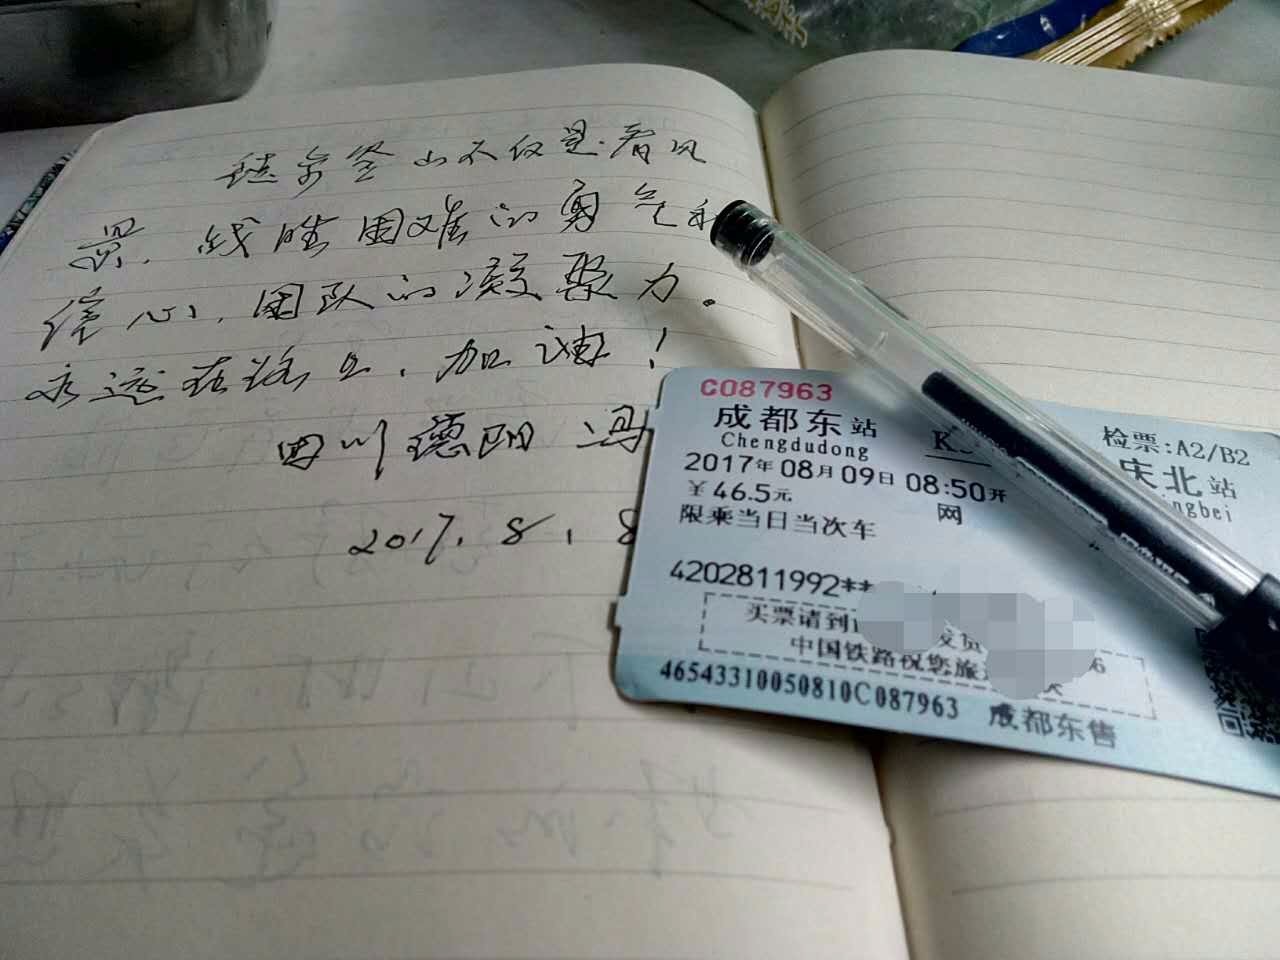 登山不仅是看风
景.战胜困难的勇气和
信心,团队的凝聚力。
永远在路上.加油!
四川德阳 冯
2017.8.8
C087963
成都东站
Chengdudong
检票:A2/B2
庆北站
ngbei
2017年08月09日08:50开
¥46.5元
网
限乘当日当次车
4202811992**
买票请到1 发货
中国铁路祝您旅 6
46543310050810C087963 成都东售